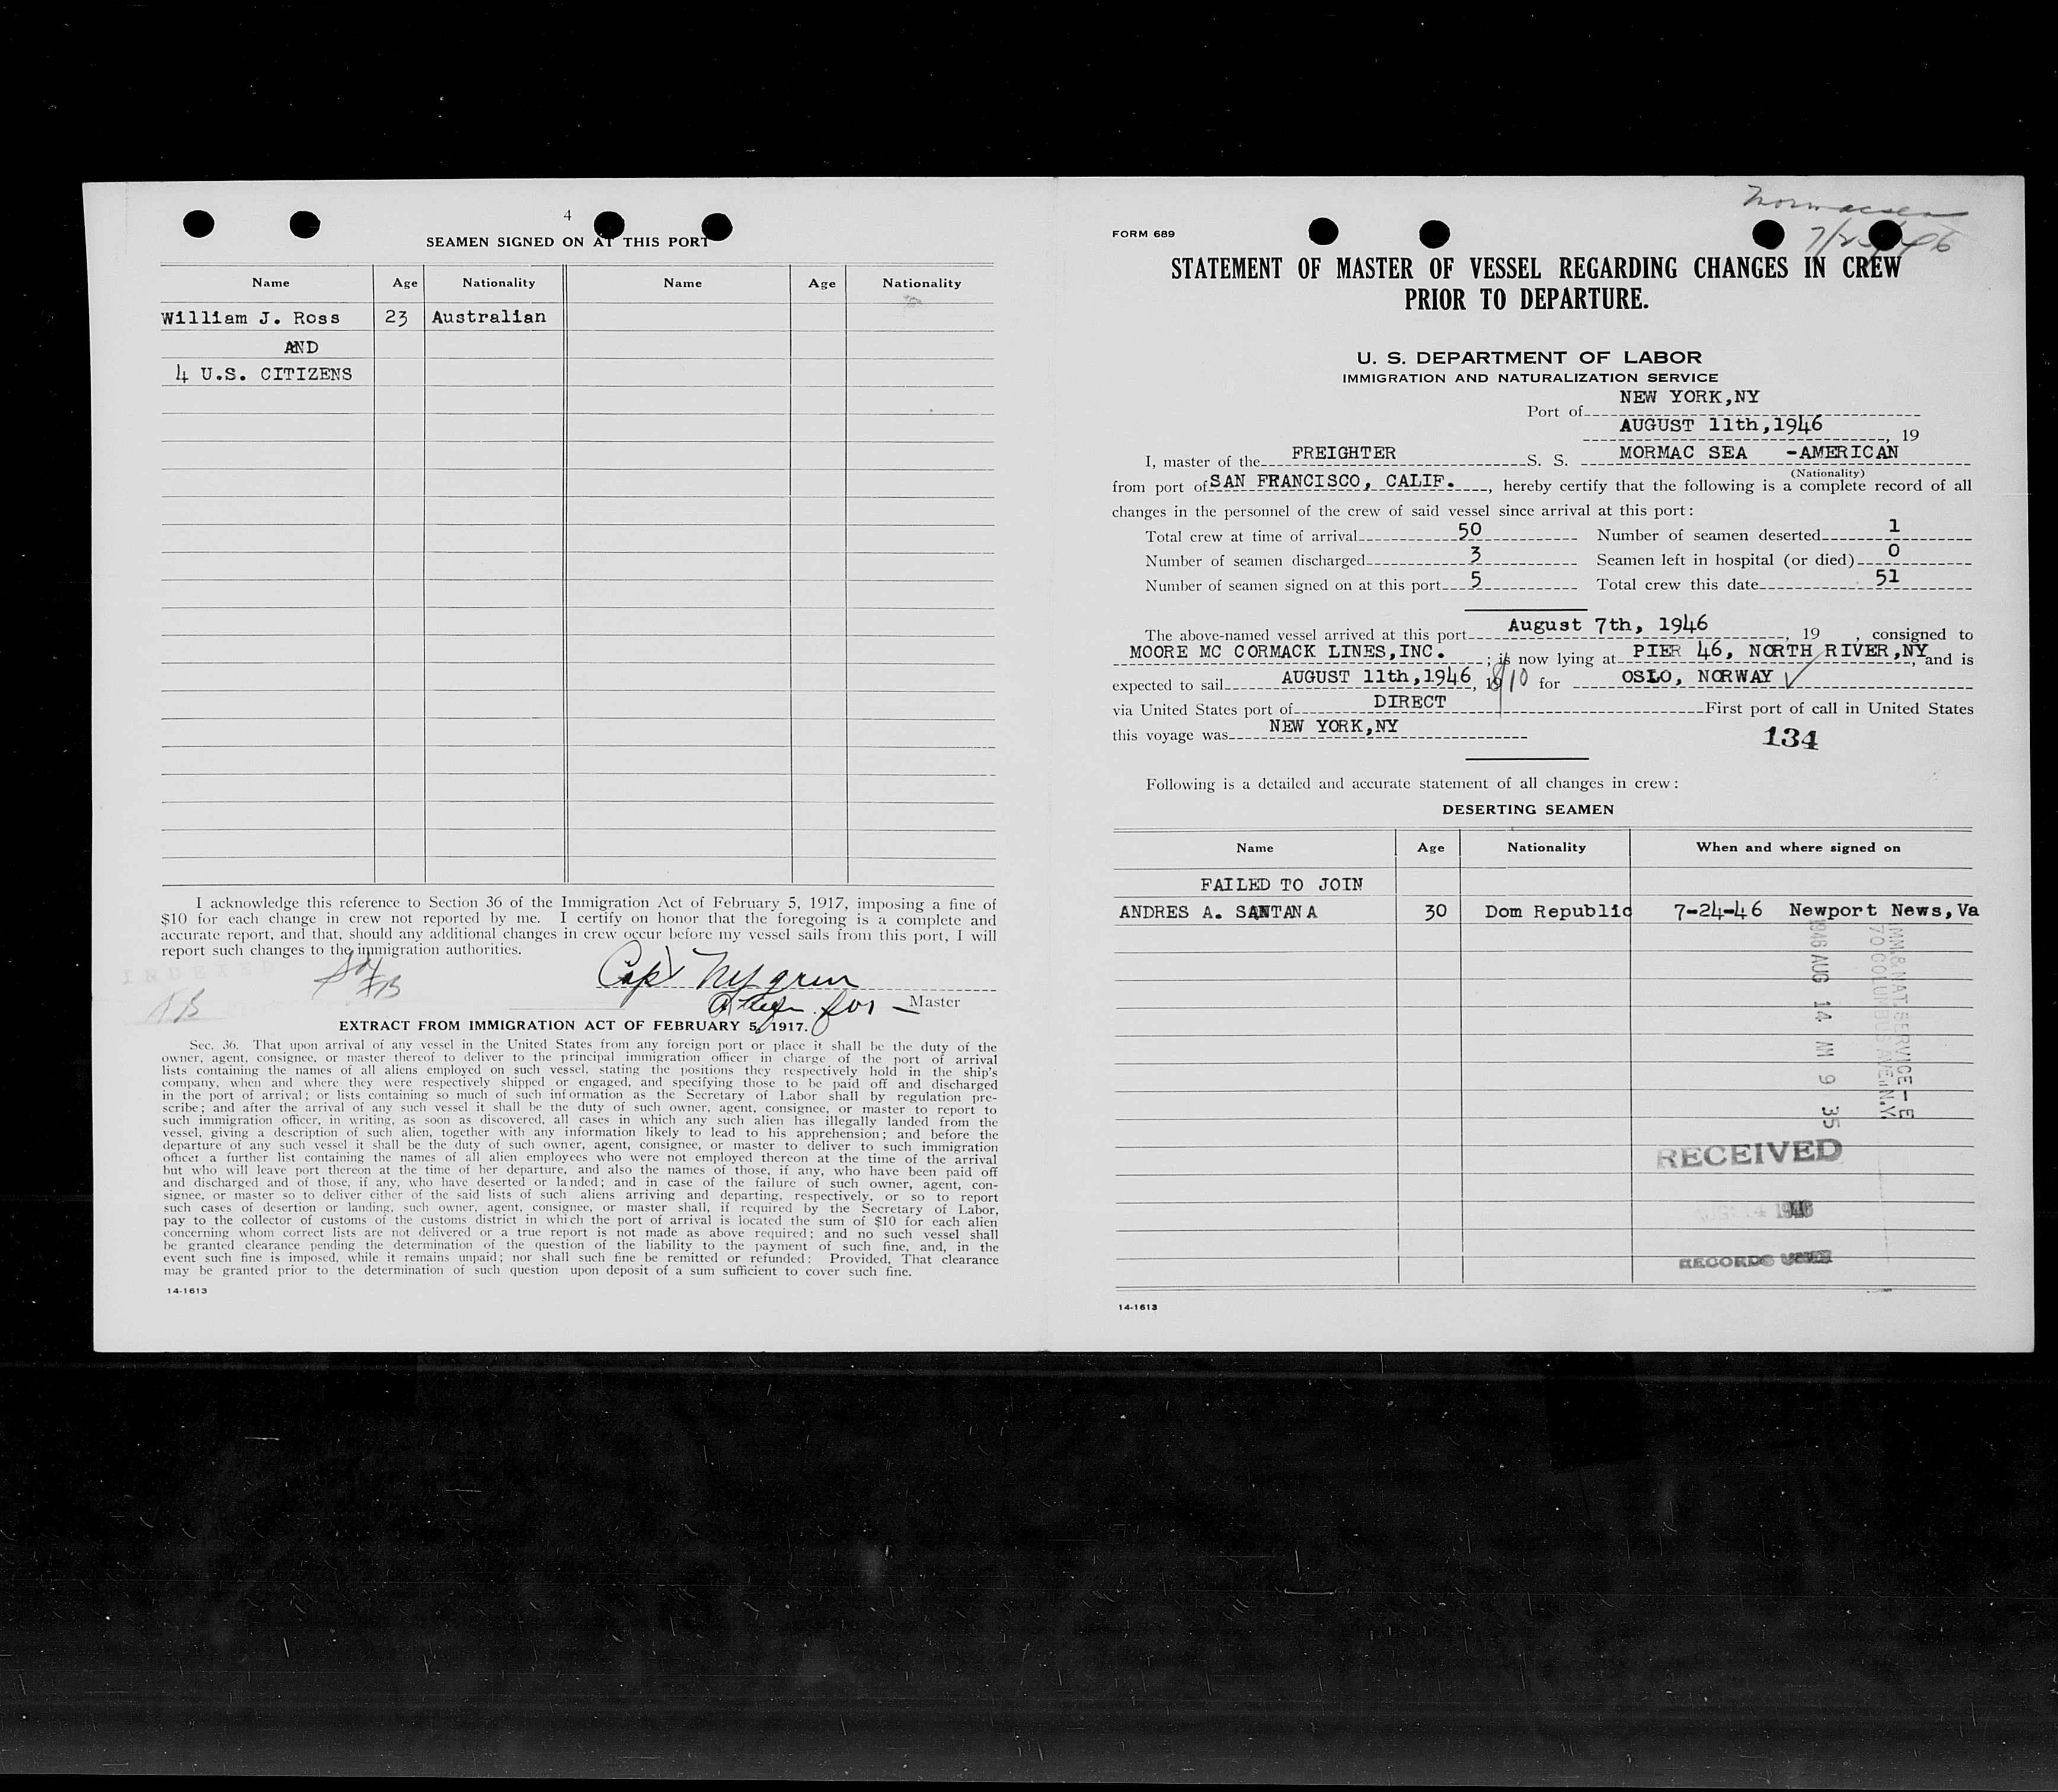 4
SEAMEN SIGNED ON AT THIS PORT
Name Age Nationality Name Age Nationality
William J. Ross 23 Australian
AND
4 U.S. CITIZENS
I acknowledge this reference to Section 36 of the Immigration Act of February 5, 1917, imposing a fine of
$10 for each change in crew not reported by me. I certify on honor that the foregoing is a complete and
accurate report, and that, should any additional changes in crew occur before my vessel sails from this port, I will
report such changes to the immigration authorities.
INDEXED
Capt Nygren
for Master
EXTRACT FROM IMMIGRATION ACT OF FEBRUARY 5, 1917.
Sec. 36. That upon arrival of any vessel in the United States from any foreign port or place it shall be the duty of the
owner, agent, consignee, or master thereof to deliver to the principal immigration officer in charge of the port of arrival
lists containing the names of all aliens employed on such vessel, stating the positions they respectively hold in the ship's
company, when and where they were respectively shipped or engaged, and specifying those to be paid off and discharged
in the port of arrival; or lists containing so much of such information as the Secretary of Labor shall by regulation pre-
scribe; and after the arrival of any such vessel it shall be the duty of such owner, agent, consignee, or master to report to
such immigration officer, in writing, as soon as discovered, all cases in which any such alien has illegally landed from the
vessel, giving a description of such alien, together with any information likely to lead to his apprehension; and before the
departure of any such vessel it shall be the duty of such owner, agent, consignee, or master to deliver to such immigration
officer a further list containing the names of all alien employees who were not employed thereon at the time of the arrival
but who will leave port thereon at the time of her departure, and also the names of those, if any, who have been paid off
and discharged and of those, if any, who have deserted or landed; and in case of the failure of such owner, agent, con-
signee, or master so to deliver either of the said lists of such aliens arriving and departing, respectively, or so to report
such cases of desertion or landing, such owner, agent, consignee, or master shall, if required by the Secretary of Labor,
pay to the collector of customs of the customs district in which the port of arrival is located the sum of $10 for each alien
concerning whom correct lists are not delivered or a true report is not made as above required; and no such vessel shall
be granted clearance pending the determination of the question of the liability to the payment of such fine, and, in the
event such fine is imposed, while it remains unpaid; nor shall such fine be remitted or refunded: Provided, That clearance
may be granted prior to the determination of such question upon deposit of a sum sufficient to cover such fine.
14-1613
Mormacsea
FORM 689
STATEMENT OF MASTER OF VESSEL REGARDING CHANGES IN CREW
PRIOR TO DEPARTURE.
U. S. DEPARTMENT OF LABOR
IMMIGRATION AND NATURALIZATION SERVICE
Port of NEW YORK,NY
AUGUST 11th,1946 , 19
I, master of the FREIGHTER S. S. MORMAC SEA -AMERICAN
(Nationality)
from port of SAN FRANCISCO, CALIF. , hereby certify that the following is a complete record of all
changes in the personnel of the crew of said vessel since arrival at this port:
Total crew at time of arrival 50 Number of seamen deserted 1
Number of seamen discharged 3 Seamen left in hospital (or died) 0
Number of seamen signed on at this port 5 Total crew this date 51
The above-named vessel arrived at this port August 7th, 1946 , 19 , consigned to
MOORE MC CORMACK LINES,INC. ; is now lying at PIER 46, NORTH RIVER,NY , and is
expected to sail AUGUST 11th,1946 , 19 8/10 for OSLO, NORWAY ✓
via United States port of DIRECT First port of call in United States
this voyage was NEW YORK,NY
134
Following is a detailed and accurate statement of all changes in crew:
DESERTING SEAMEN
Name Age Nationality When and where signed on
FAILED TO JOIN
ANDRES A. SANTANA 30 Dom Republic 7-24-46 Newport News,Va
IMM.& NAT.SERVICE-E
70 COLUMBUS AVE.,N.Y.
1946 AUG 14 AM 9 35
RECEIVED
AUG 14 1946
RECORDS UNIT
14-1613